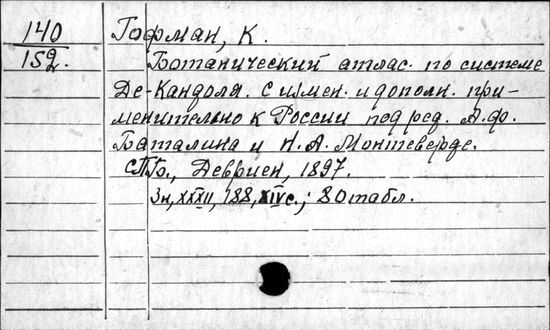 140 Гофман, К.
152. Ботанический атлас по системе
Де-Кандоля. С измен. и дополн. при-
менительно к России под ред. А. Ф.
Баталина и Н. А. Монтеверде.
СПб., Девриен, 1897.
3н, XXXII, 188, XIVс.; 80 табл.